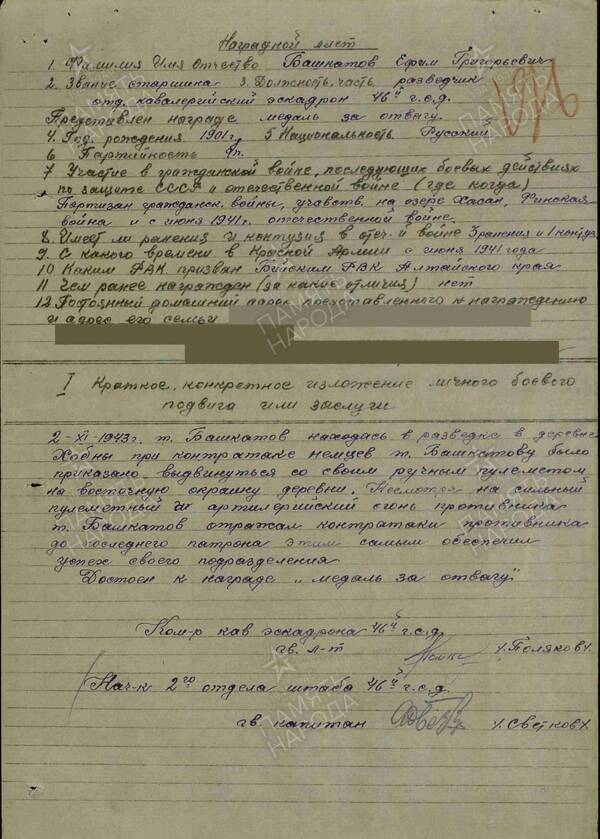 Наградной лист
1. Фамилия Имя Отчество Башкатов Ефим Григорьевич
2. Звание старшина 3. Должность, часть разведчик
отд. кавалерийский эскадрон 46й г.с.д.
Представлен награде медаль за отвагу.
4. Год. рождения 1901 г. 5 Национальность Русский
6 Партийность
7 Участие в гражданской войне, последующих боевых действиях
по защете СССР и отечественной войне (где когда)
Партизан гражданск. войны, участв. на озере Хасан, Финская
война и с июня 1941г. отечественной войне.
8. Имеет ли ранения и контузия в отеч-й войне 3 ранения и 1 контуз
9. С какого времени в Красной Армии с июня 1941 года
10 Каким РВК призван Бийским РВК Алтайского края
11 Чем ранее награжден (за какие отличия) нет
12. Постоянний домашний адрес представленного к награждению
и адрес его семьи
I Краткое, конкретное изложение личного боевого
подвига или заслуги
2-XI-1943г. т. Башкатов находясь в разведке в деревне
Хобны при контратаке немцев т. Башкатову было
приказано выдвинуться со своим ручным пулеметом
на восточную окраину деревни. Несмотря на сильный
пулеметный и артилерийский огонь противника
т. Башкатов отражал контратаки противника
до последнего патрона этим самым обеспечил
успех своего подразделения
Достоен к награде „медаль за отвагу"
Ком-р кав эскадрона 46й г.с.д.
гв. л-т /Поляков/.
Нач-к 2го отдела штаба 46й г.с.д.
гв. капитан /Светков/
ПАМЯТЬ НАРОДА